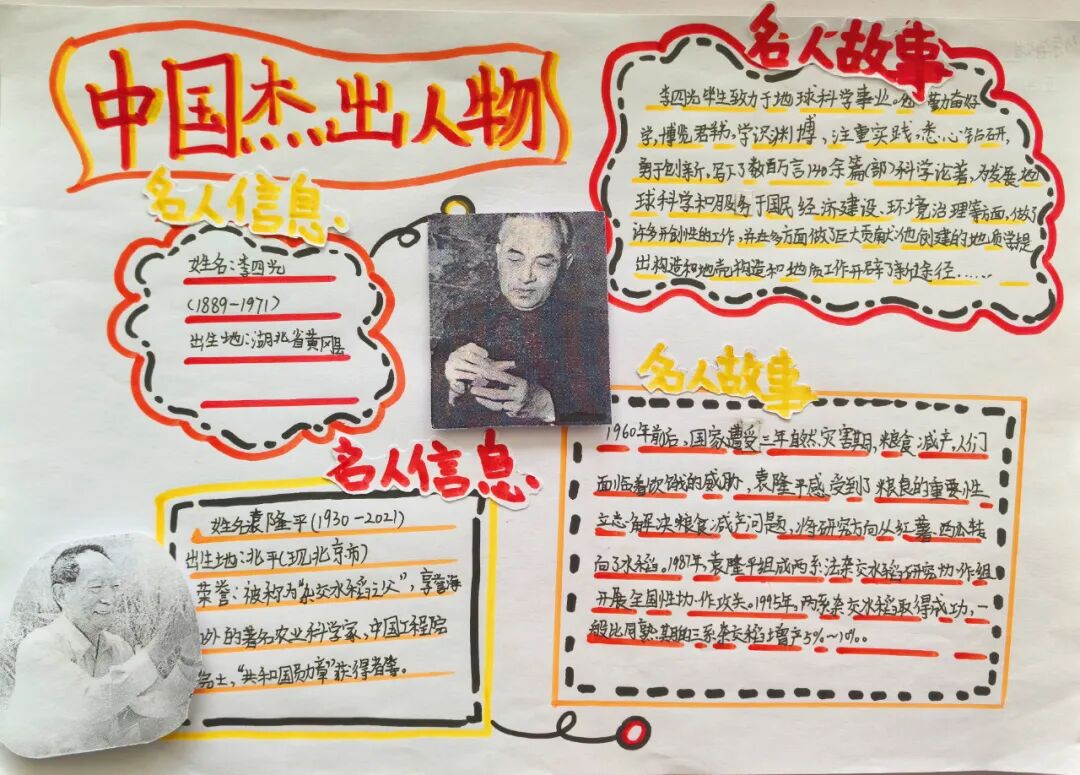 中国杰出人物
名人信息
姓名:李四光
(1889-1971)
出生地:湖北省黄冈县
名人故事
李四光毕生致力于地球科学事业。他勤奋好
学,博览群书,学识渊博,注重实践,悉心钻研,
勇于创新。写下了数百万言140余篇(部)科学论著,为发展地
球科学和服务于国民经济建设、环境治理等方面,做了
许多开创性的工作,并在多方面做了巨大贡献:他创建的地质学提
出构造和地壳构造和地质工作开辟了新途径……
名人故事
1960年前后,国家遭受三年自然灾害期,粮食减产,人们
面临着饮饿的威胁,袁隆平感受到了粮良的重要性
立志解决粮食减产问题,将研究方向从红薯、西瓜转
向了水稻。1987年,袁隆平组成两系法杂交水稻研究协作组
开展全国性协作攻关。1995年。两系杂交水稻取得成功,一
般比同熟期的三系杂交稻增产5%~10%。
名人信息
姓名袁隆平(1930-2021)
出生地:北平(现北京市)
荣誉:被称为“杂交水稻之父”,享誉海
外的著名农业科学家、中国工程院
“共和国勋章”获得者等。